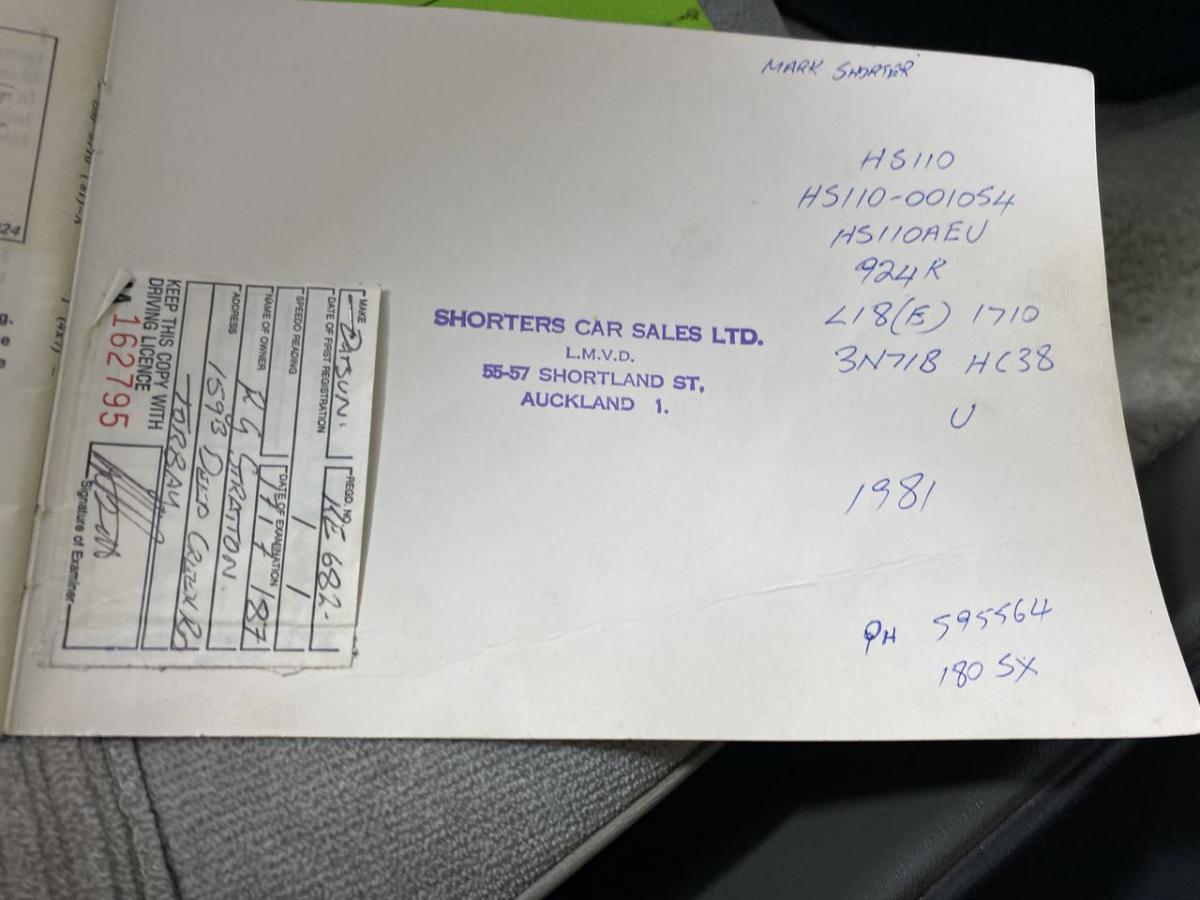 MARK SHORTER
HS110
HS110-001054
HS110AEU
924R
L18(E) 1710
3N71B HC38
U
1981
PH 595564
180 SX
SHORTERS CAR SALES LTD.
L.M.V.D.
55-57 SHORTLAND ST,
AUCKLAND 1.
MAKE DATSUN. REGD. NO. KE 682.
DATE OF FIRST REGISTRATION / /
SPEEDO READING DATE OF EXAMINATION 17/7/87
NAME OF OWNER R G STRATTON.
ADDRESS 159B
TORBAY
KEEP THIS COPY WITH
DRIVING LICENCE
162795
Signature of Examiner
24